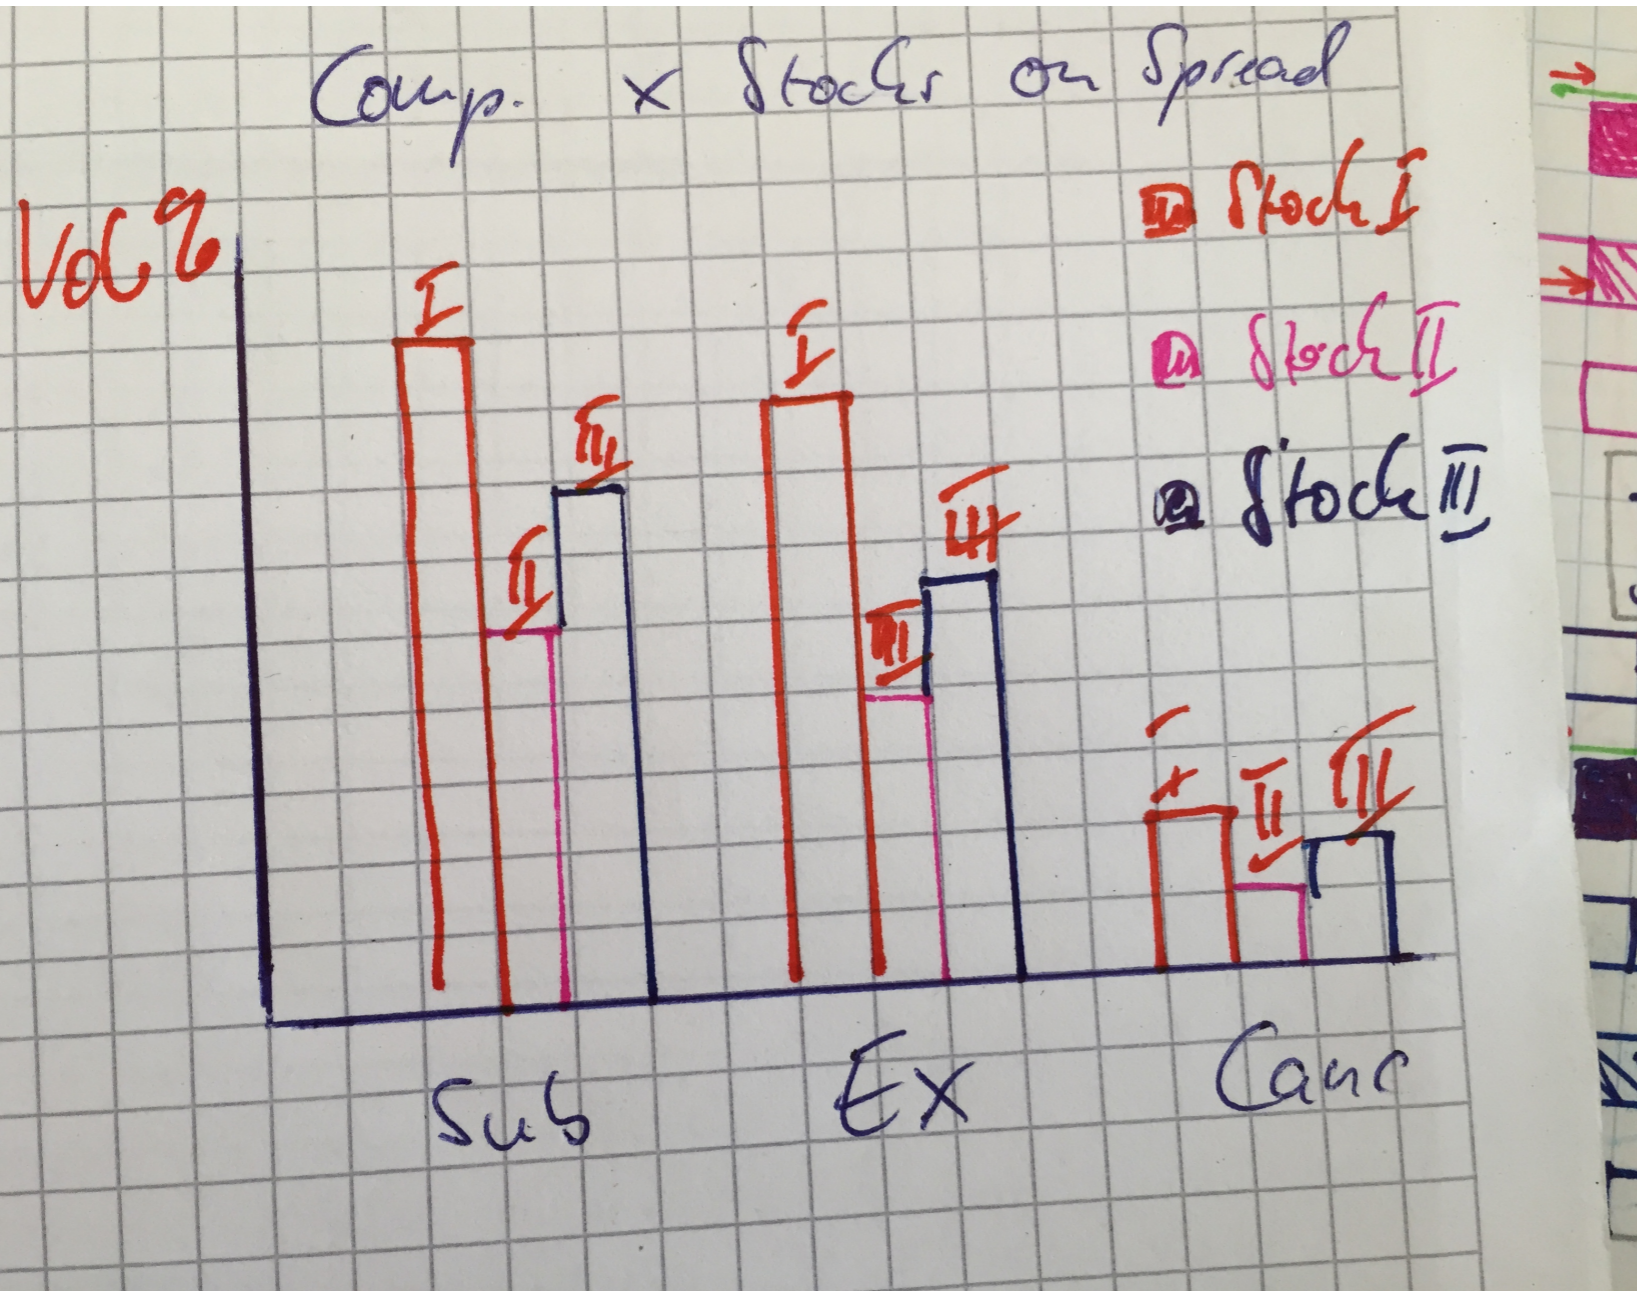 Comp. x Stocks on Spread
Vol %
Stock I
Stock II
Stock III
I
II
III
I
II
III
I
II
III
Sub
Ex
Canc